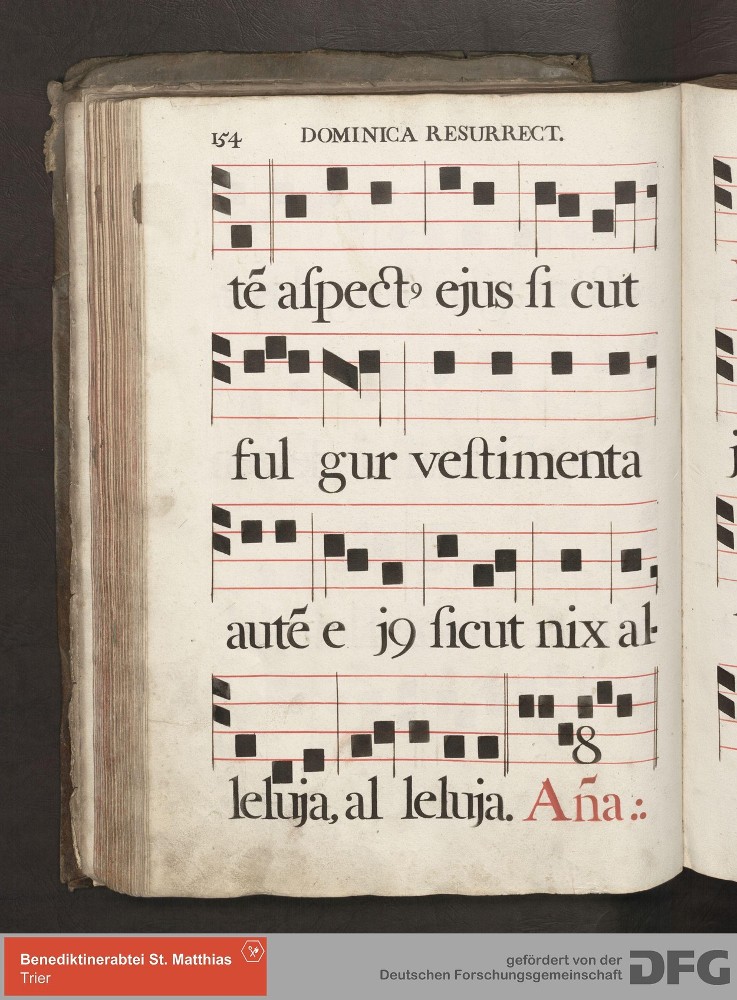 154 DOMINICA RESURRECT.
tē aſpectꝯ ejus ſi cut
ful gur veſtimenta
autē e jꝯ ſicut nix al-
leluja, al leluja. Aña :.
8
Benediktinerabtei St. Matthias
Trier
gefördert von der
Deutschen Forschungsgemeinschaft
DFG